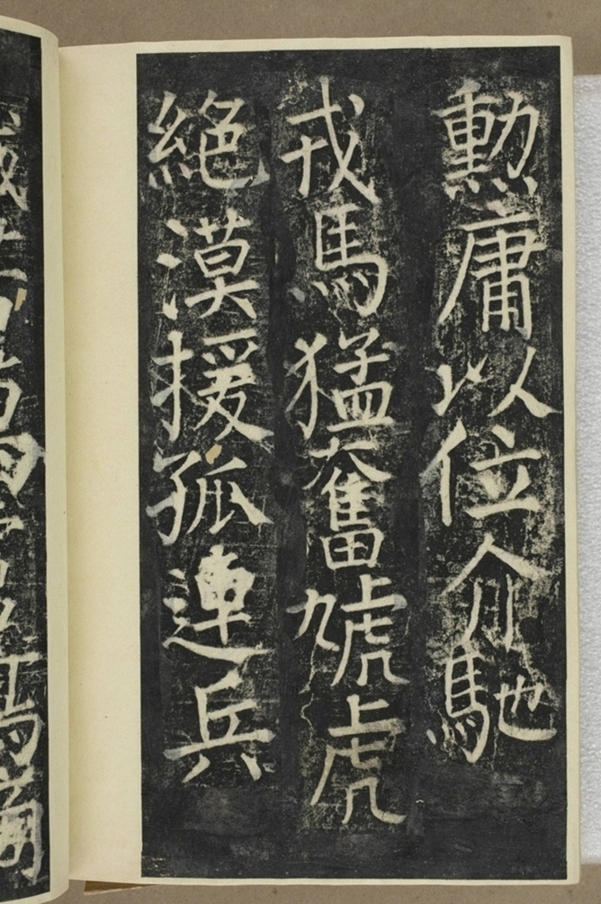 勲庸以位介馳
戎馬猛奮虓虎
絶漠援孤連兵